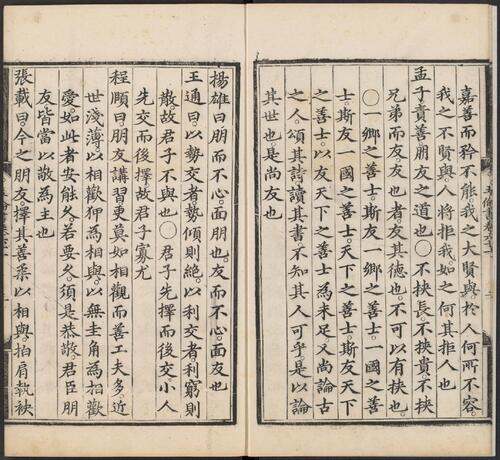 嘉善而矜不能。我之大賢與。於人何所不容
我之不賢與。人將拒我。如之何其拒人也
孟子責善朋友之道也○不挾長。不挾貴。不挾
兄弟而友。友也者友其德也。不可以有挾也。
○一鄉之善士。斯友一鄉之善士。一國之善
士。斯友一國之善士。天下之善士斯友天下
之善士。以友天下之善士為未足。又尚論古
之人。頌其詩讀其書不知其人可乎。是以論
其世也。是尚友也
揚雄曰朋而不心。面朋也。友而不心。面友也
王通曰。以勢交者勢傾則絕。以利交者利窮則
散。故君子不與也○君子先擇而後交。小人
先交而後擇。故君子寡尤
程頤曰。朋友講習。更莫如相觀而善工夫多。近
世淺薄。以相歡狎為相與。以無圭角為相歡
愛。如此者安能久。若要久。須是恭敬。君臣朋
友皆當以敬為主也
張載曰。今之朋友。擇其善柔以相與。拍肩執袂